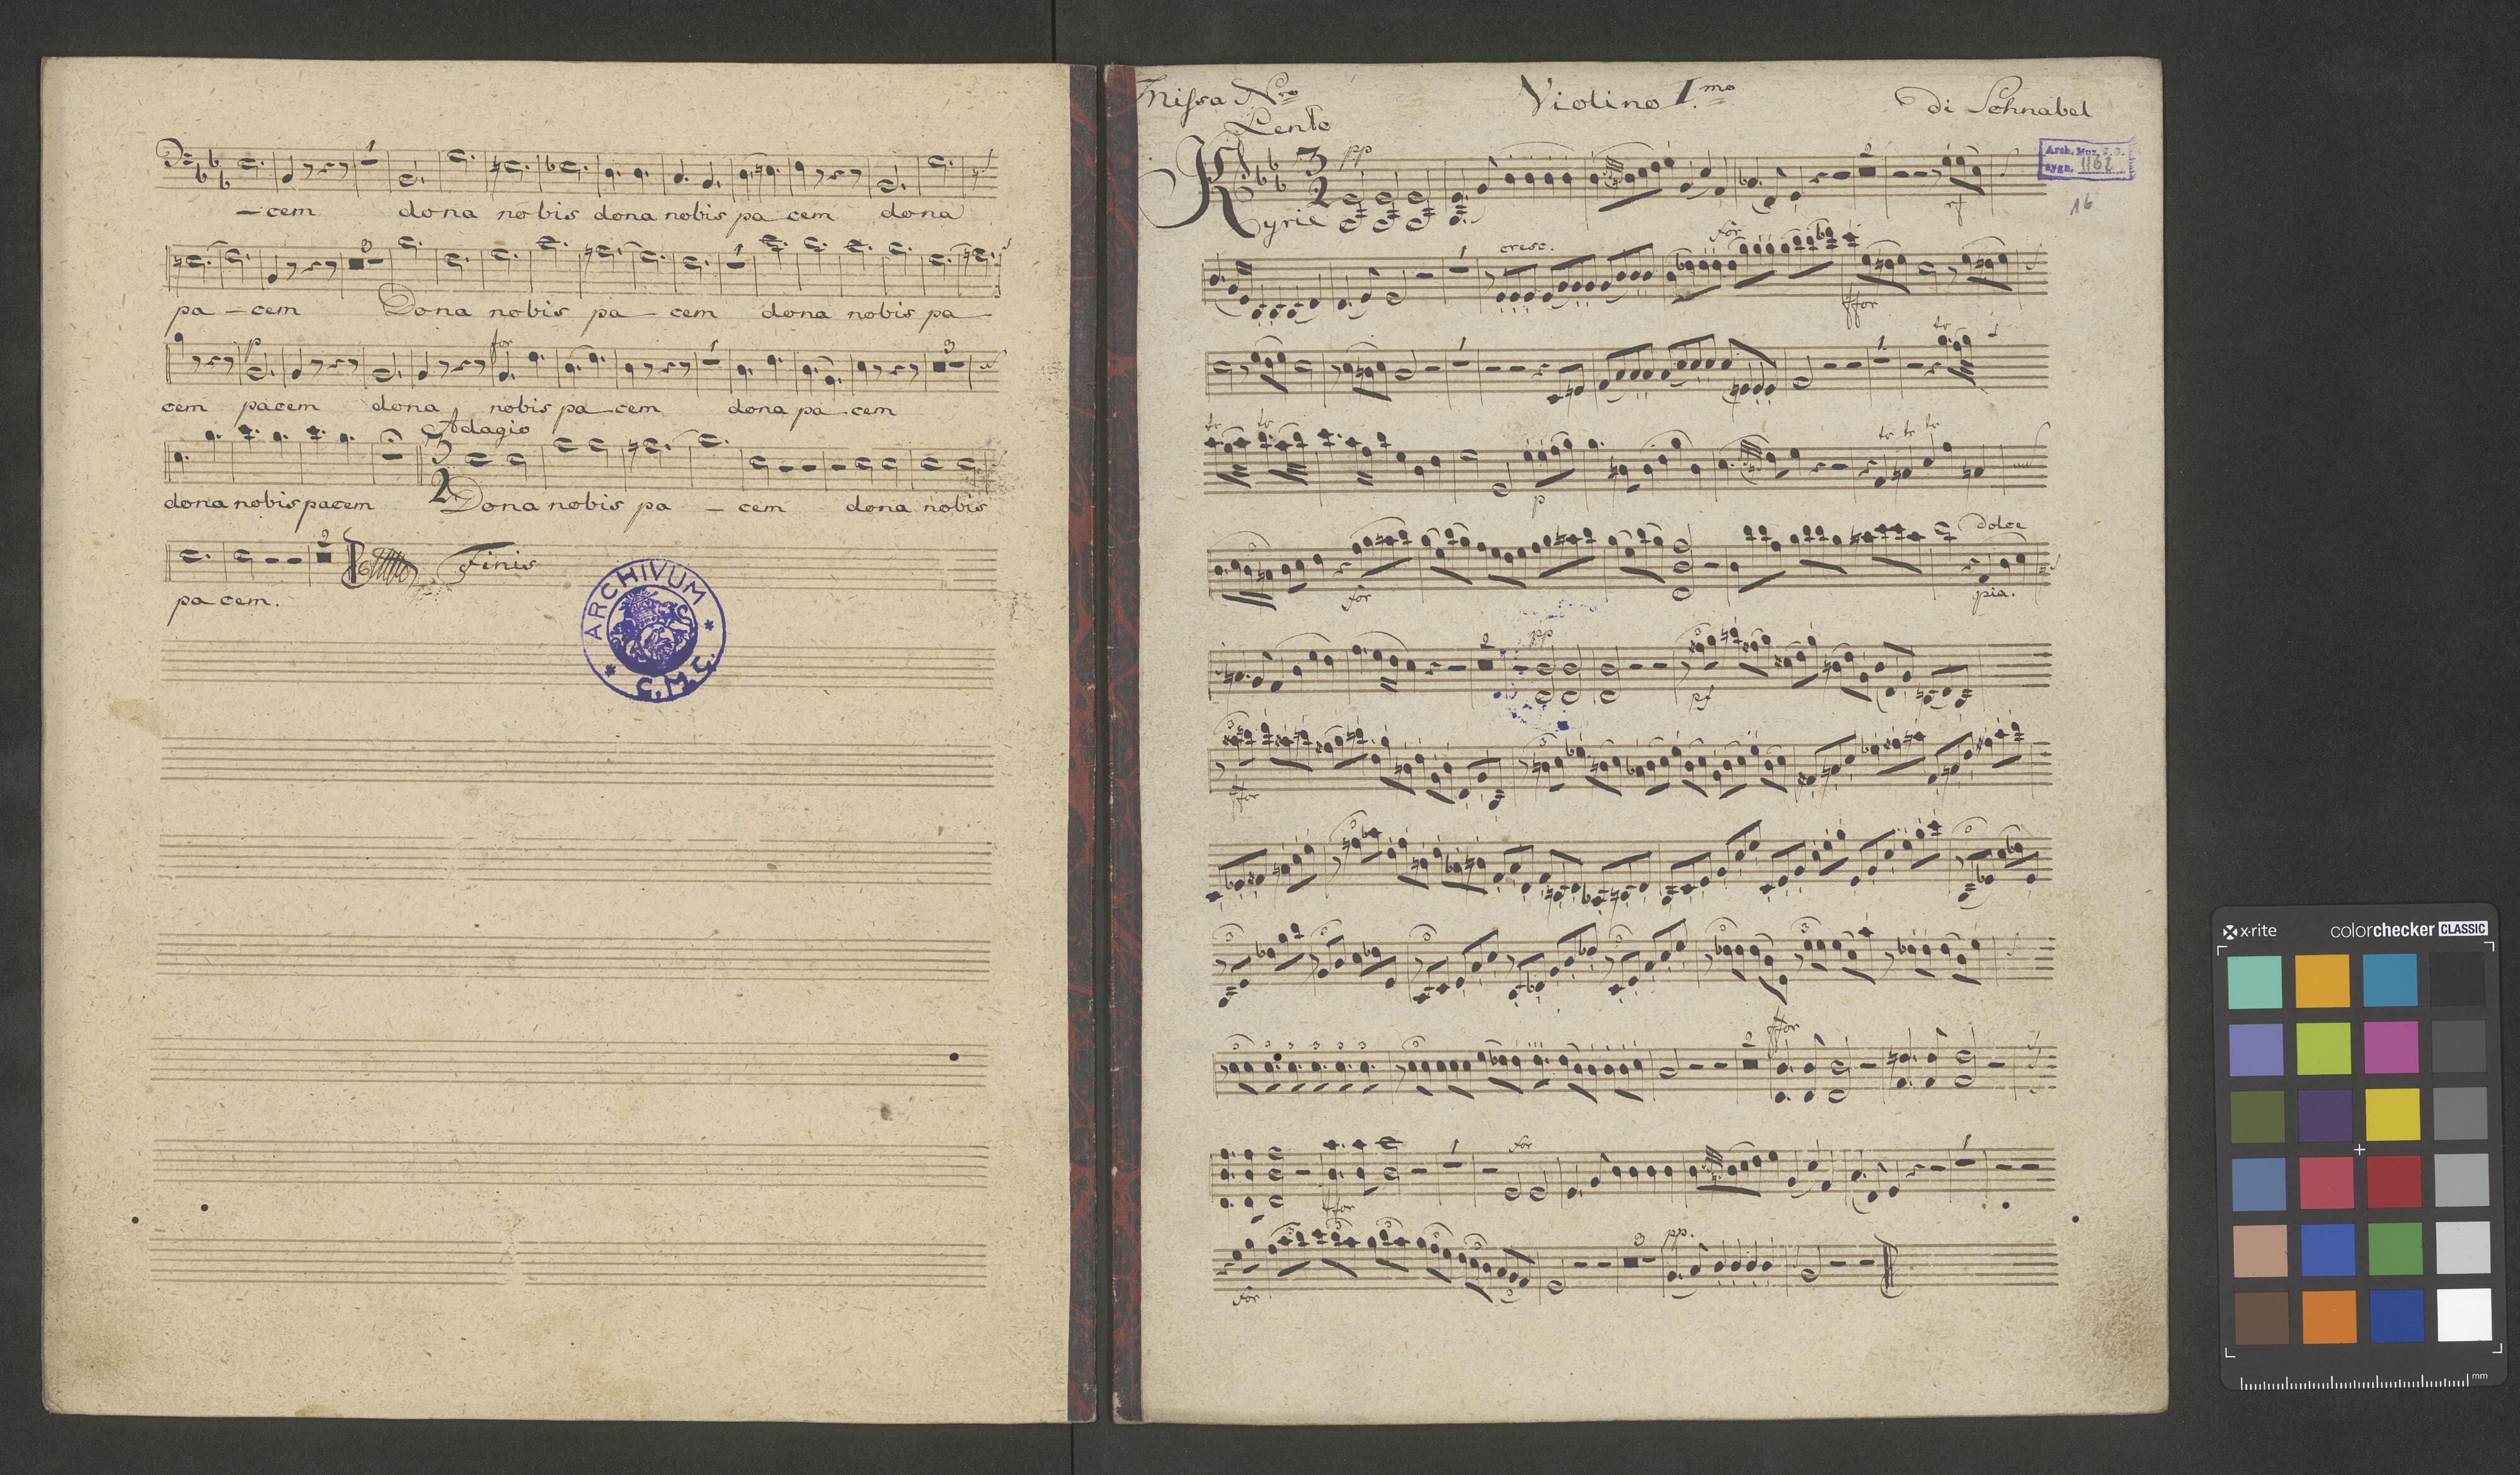 — cem dona nobis dona nobis pa cem dona
pa — cem Dona nobis pa cem dona nobis pa
p for
cem pacem dona nobis pa cem dona pa cem
Adagio
dona nobis pacem Dona nobis pa — cem dona nobis
Finis
pa cem.
ARCHIVUM
C.M.C.
Missa Nro Violino I.mo di Schnabel
Lento
pp
Kyrie
Arch. Muz.
sygn. 1162
16
cresc. for
ffor
tr
tr tr tr tr tr
p
dolce
for pia.
pp
ffor
ffor
for
ffor
pp.
for
x·rite colorchecker CLASSIC
mm